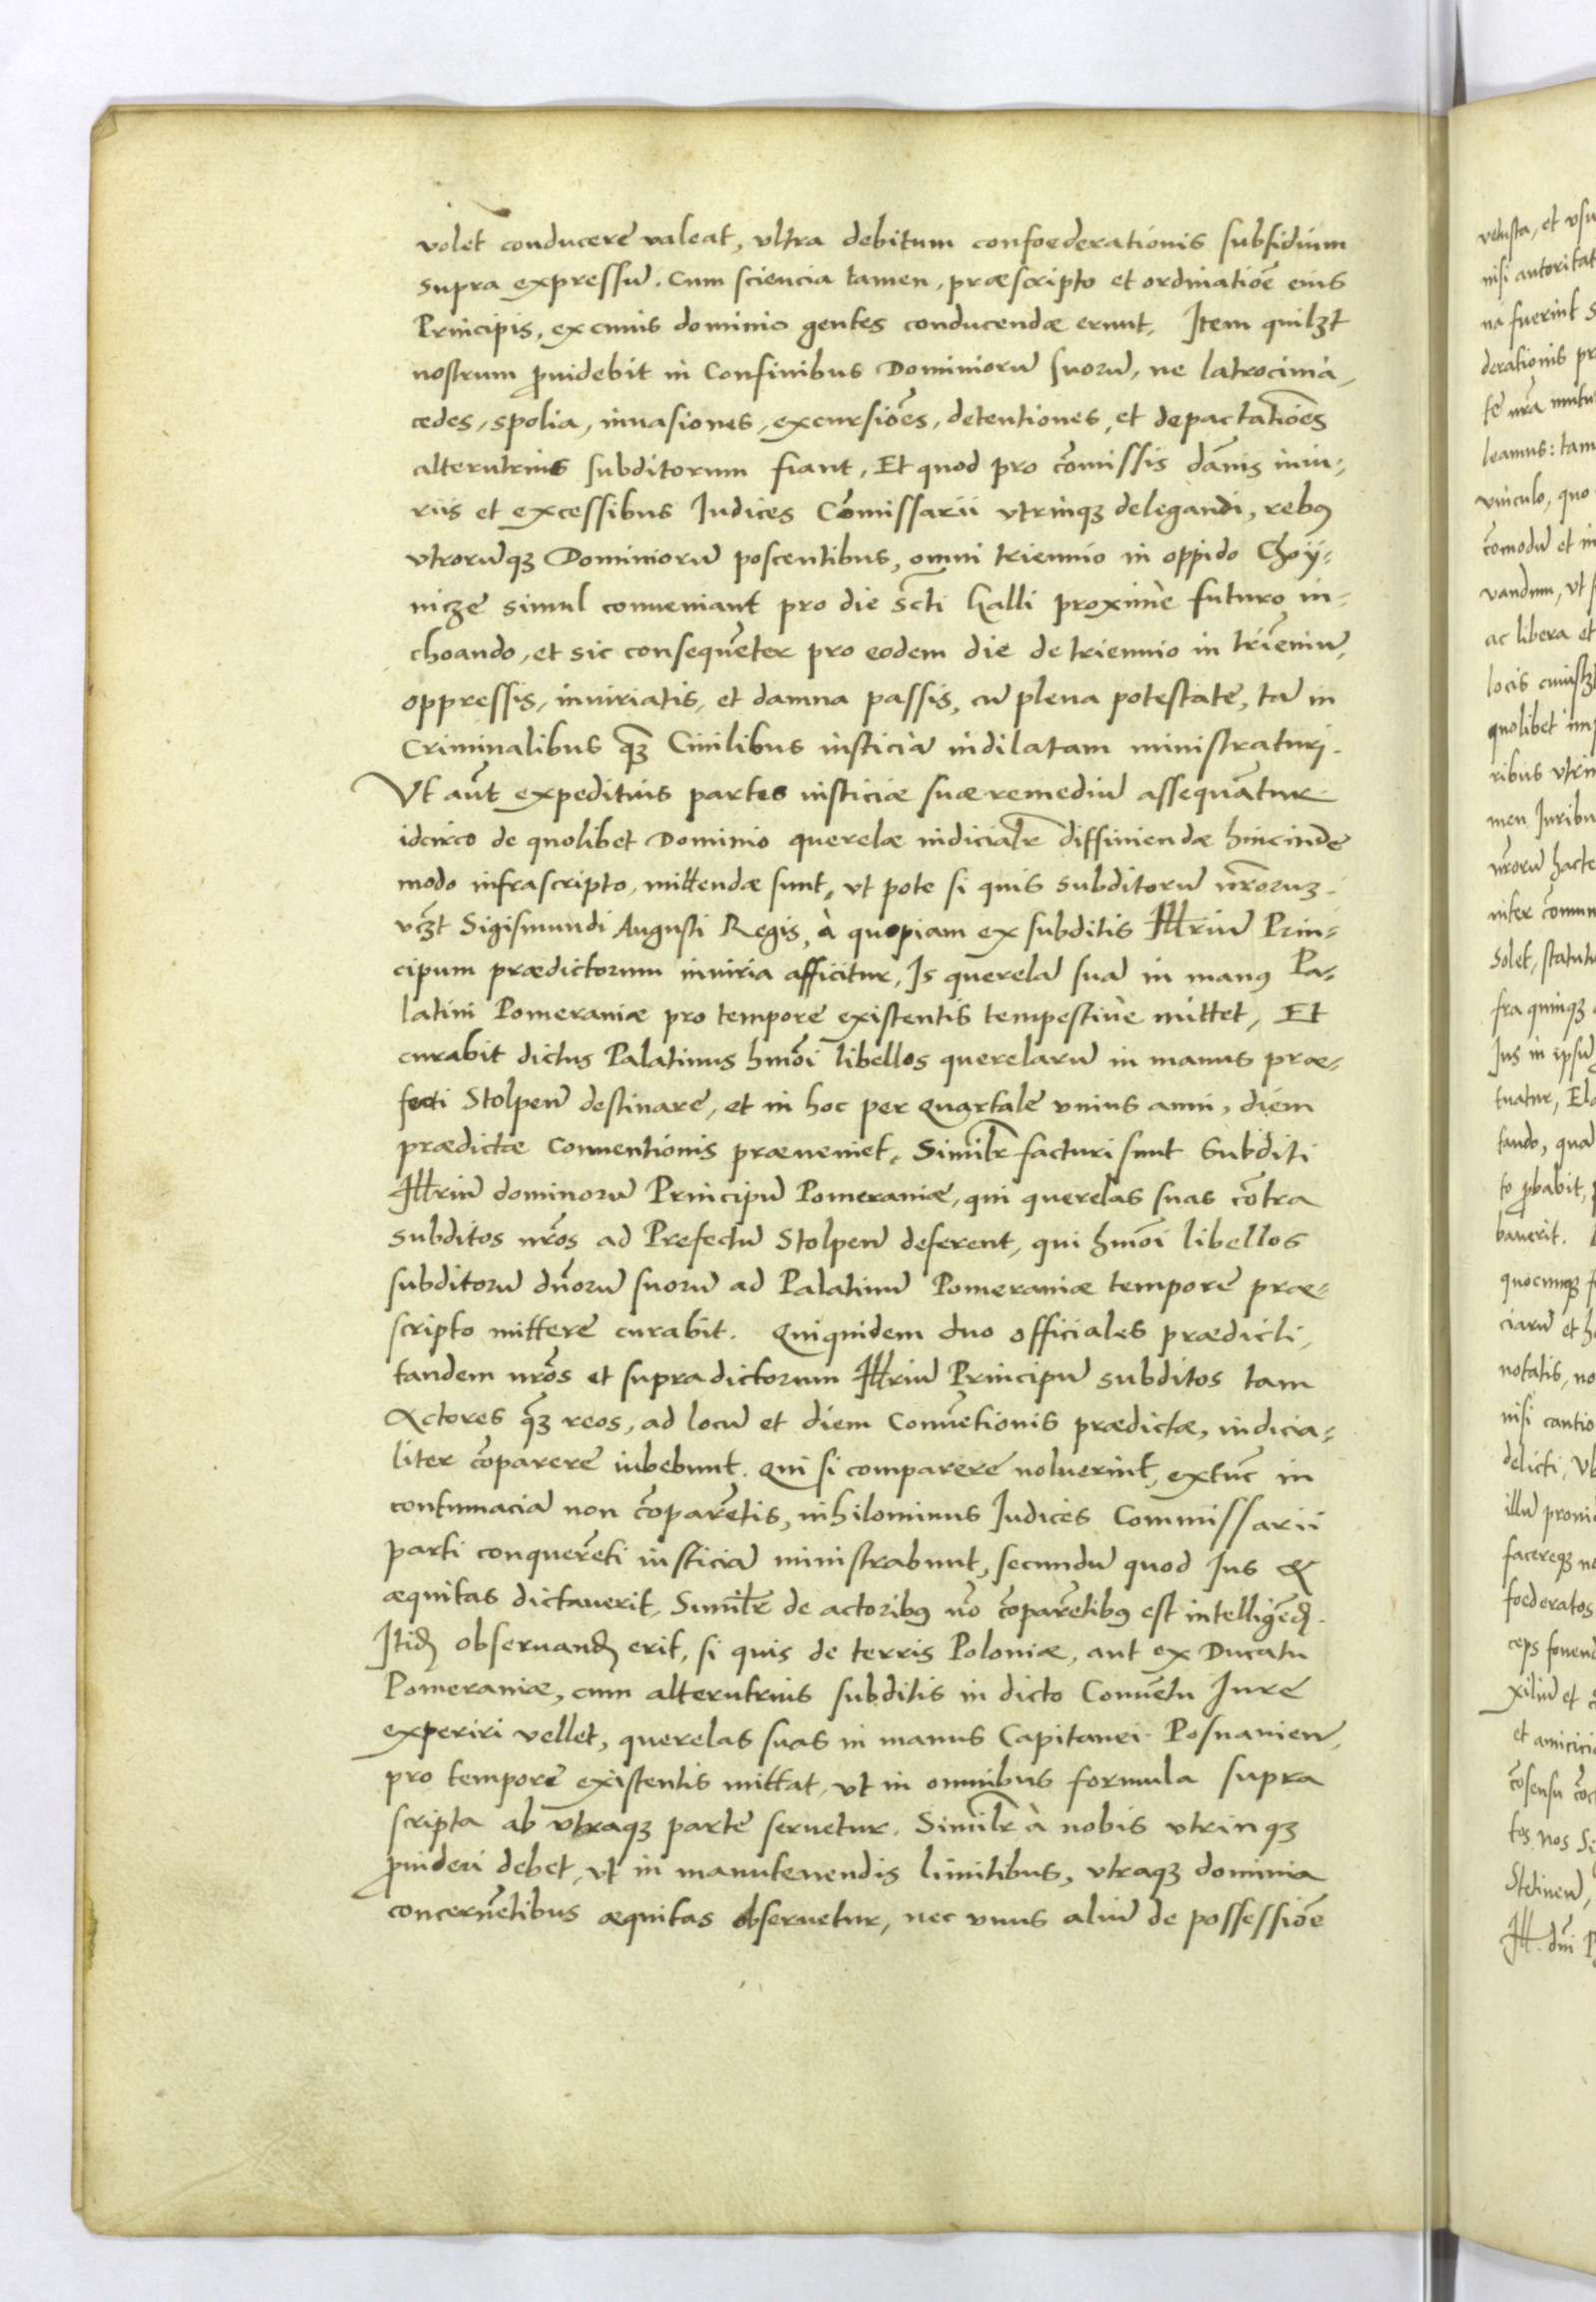 volet conducere valeat, vltra debitum confoederationis subsidium
supra expressũ. Cum sciencia tamen, præscripto et ordinatiõe eius
Principis, ex cuius dominio gentes conducendæ erunt, Item quilꝫt
nostrum ꝓuidebit in Confinibus Dominiorũ suorũ, ne latrocinia,
cedes, spolia, inuasiones, excursiões, detentiones, et depactatiões
alterutrius subditorum fiant, Et quod pro cõmissis dãnis iniu-
riis et excessibus Iudices Cõmissarii vtrinqꝫ delegandi, rebꝰ
vtrorũqꝫ Dominiorũ poscentibus, omni triennio in oppido Choy-
nicze simul conueniant pro die Scti Galli proxime futuro in-
choando, et sic consequẽter pro eodem die de triennio in triẽniũ,
oppressis, iniuriatis, et damna passis, cũ plena potestate, tã in
Criminalibus qꝫ Ciuilibus iusticiã indilatam ministraturi.
Vt aũt expeditius partes iusticiæ suæ remediũ assequãtur
idcirco de quolibet Dominio querelæ iudicialr̃ diffiniendæ hincinde
modo infrascripto, mittendæ sunt, vt pote si quis subditorũ nr̃oruꝫ
vcꝫt Sigismundi Augusti Regis, à quopiam ex subditis Illriũ Prin-
cipum prædictorum iniuria afficitur, Is querelã suã in manꝰ Pa-
latini Pomeraniæ pro tempore existentis tempestiue mittet, Et
curabit dictus Palatinus hmõi libellos querelarũ in manus præ-
fecti Stolpeñ destinare, et in hoc per quartale vnius anni, diem
prædictæ Conuentionis præueniet, Similr̃ facturi sunt Subditi
Illriũ dominorũ Principũ Pomeraniæ, qui querelas suas cõtra
subditos nr̃os ad Prefectũ Stolpeñ deferent, qui hmõi libellos
subditorũ dñorũ suorũ ad Palatinũ Pomeraniæ tempore præ-
scripto mittere curabit. Quiquidem duo officiales prædicti,
tandem nr̃os et supradictorum Illriũ Principũ subditos tam
Actores qꝫ reos, ad locũ et diem Conuẽtionis prædictæ, iudicia-
liter cõparere iubebunt. Qui si comparere noluerint, extũc in
contumaciã non cõparẽtis, nihilominus Iudices Commissarii
parti conquerẽti iusticiã ministrabunt, secundũ quod Ius &
æquitas dictauerit, Similr̃ de actoribꝰ nõ cõparẽtibꝰ est intelligẽdꝫ.
Itidꝫ obseruandꝫ erit, si quis de terris Poloniæ, aut ex Ducatu
Pomeraniæ, cum alterutrius subditis in dicto Conuẽtu Iure
experiri vellet, querelas suas in manus Capitanei Posnanieñ,
pro tempore existentis mittat, vt in omnibus formula supra
scripta ab vtraqꝫ parte seruetur. Similr̃ à nobis vtrinqꝫ
ꝓuideri debet, vt in manutenendis limitibus, vtraqꝫ dominia
concernẽtibus æquitas obseruetur, nec vnus aliũ de possessiõe
vetusta, et vsu
nisi autoritat
na fuerint
derationis pr
te nrã mutu
leamus: tam
vinculo, quo
cõmodũ et in
uandum, vt
ac libera et
locis
quolibet imp
ribus vtrin
men Iuribu
nr̃orũ hacte
inter cõmun
Solet, statutu
fra quinqꝫ
Ius in ipsũ
tuatur,
tando, quã
to ꝓbabit,
bauerit.
quocunqꝫ
ciarũ et
notatis, no
nisi cautio
delicti,
illũ proui
facereqꝫ ne
foederatos
ceps fouend
xiliũ et
et amicici
cõsensu
tos. Nos Si
Stetineñ,
Ill. dñi P